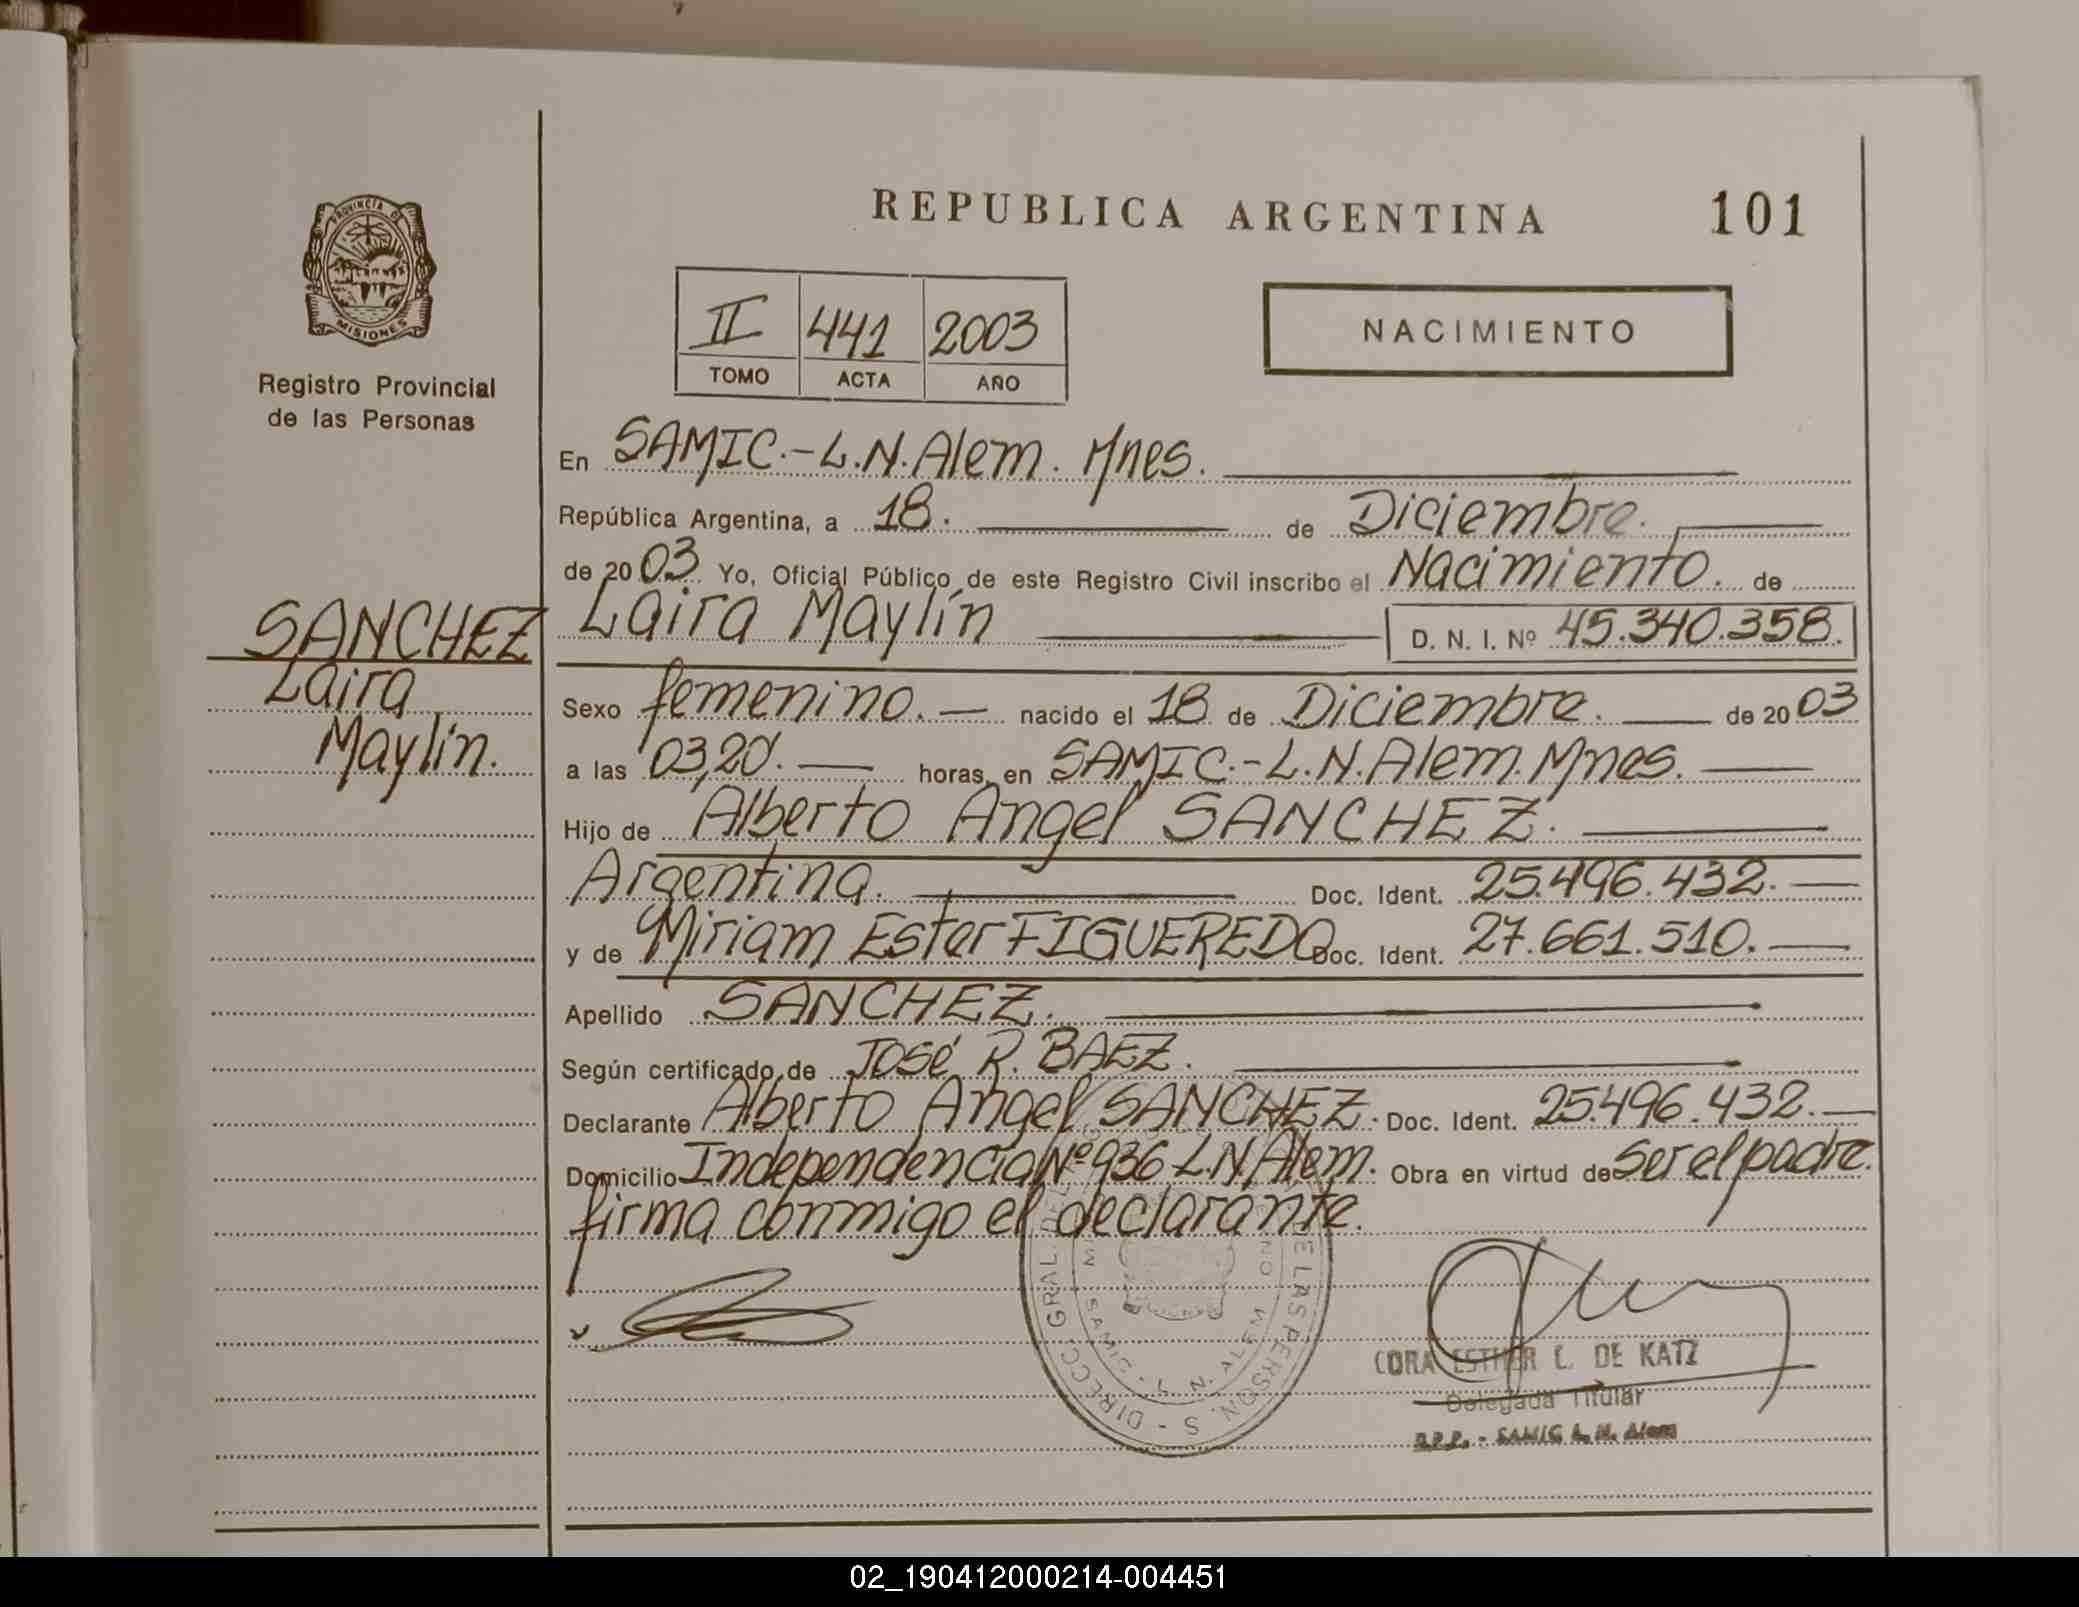 REPUBLICA ARGENTINA 101
PROVINCIA DE
MISIONES
II 441 2003
TOMO ACTA AÑO
NACIMIENTO
Registro Provincial
de las Personas
En SAMIC.-L.N.Alem. Mnes.
República Argentina, a 18. de Diciembre.
de 2003 Yo, Oficial Público de este Registro Civil inscribo el Nacimiento. de
SANCHEZ
Laira
Maylín.
Laira Maylín D. N. I. Nº 45.340.358.
Sexo femenino. nacido el 18 de Diciembre. de 2003
a las 03,20. horas, en SAMIC.-L.N.Alem.Mnes.
Hijo de Alberto Angel SANCHEZ.
Argentina. Doc. Ident. 25.496.432.
y de Miriam Ester FIGUEREDO Doc. Ident. 27.661.510.
Apellido SANCHEZ.
Según certificado de José R. BAEZ.
Declarante Alberto Angel SANCHEZ. Doc. Ident. 25.496.432.
Domicilio Independencia Nº 936 L.N.Alem. Obra en virtud de Ser el padre.
firma conmigo el declarante.
DIRECC. GRAL. DEL DE LAS PERSON. S
SAMIC - L. N. ALEM
CORA ESTHER L. DE KATZ
Delegada Titular
R.P.P. - SAMIC L. N. Alem
02_190412000214-004451